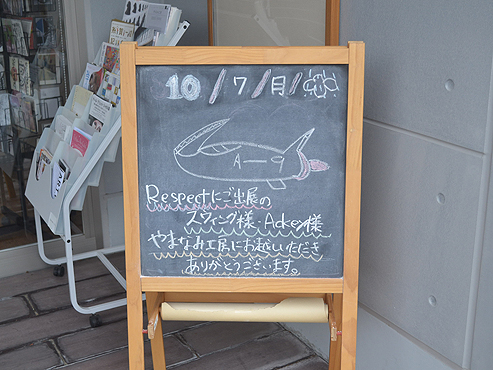 10/7/月/
A
Respectにご出展の
スウィング様・Ackey様
やまなみ工房にお越しいただき
ありがとうございます。